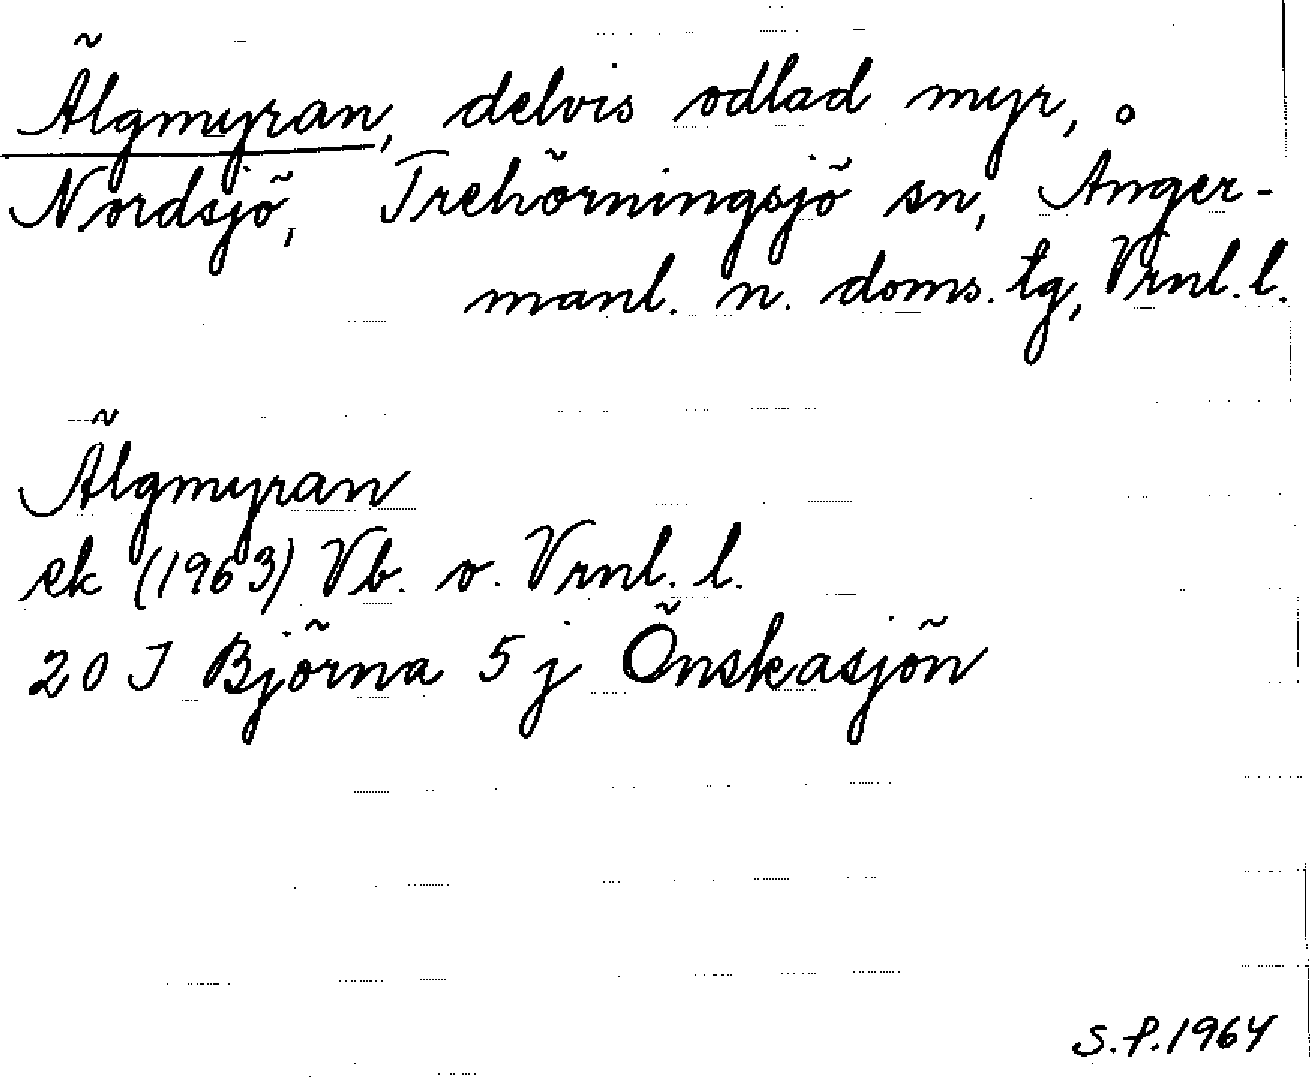 Älgmyran, delvis odlad myr,
Nordsjö, Trehörningsjö sn, Ånger-
manl. n. doms. tg, Vrnl. l.
Älgmyran
ek (1963) Vb. o. Vrnl. l.
20 J Björna 5 j Önskasjön
S.P. 1964